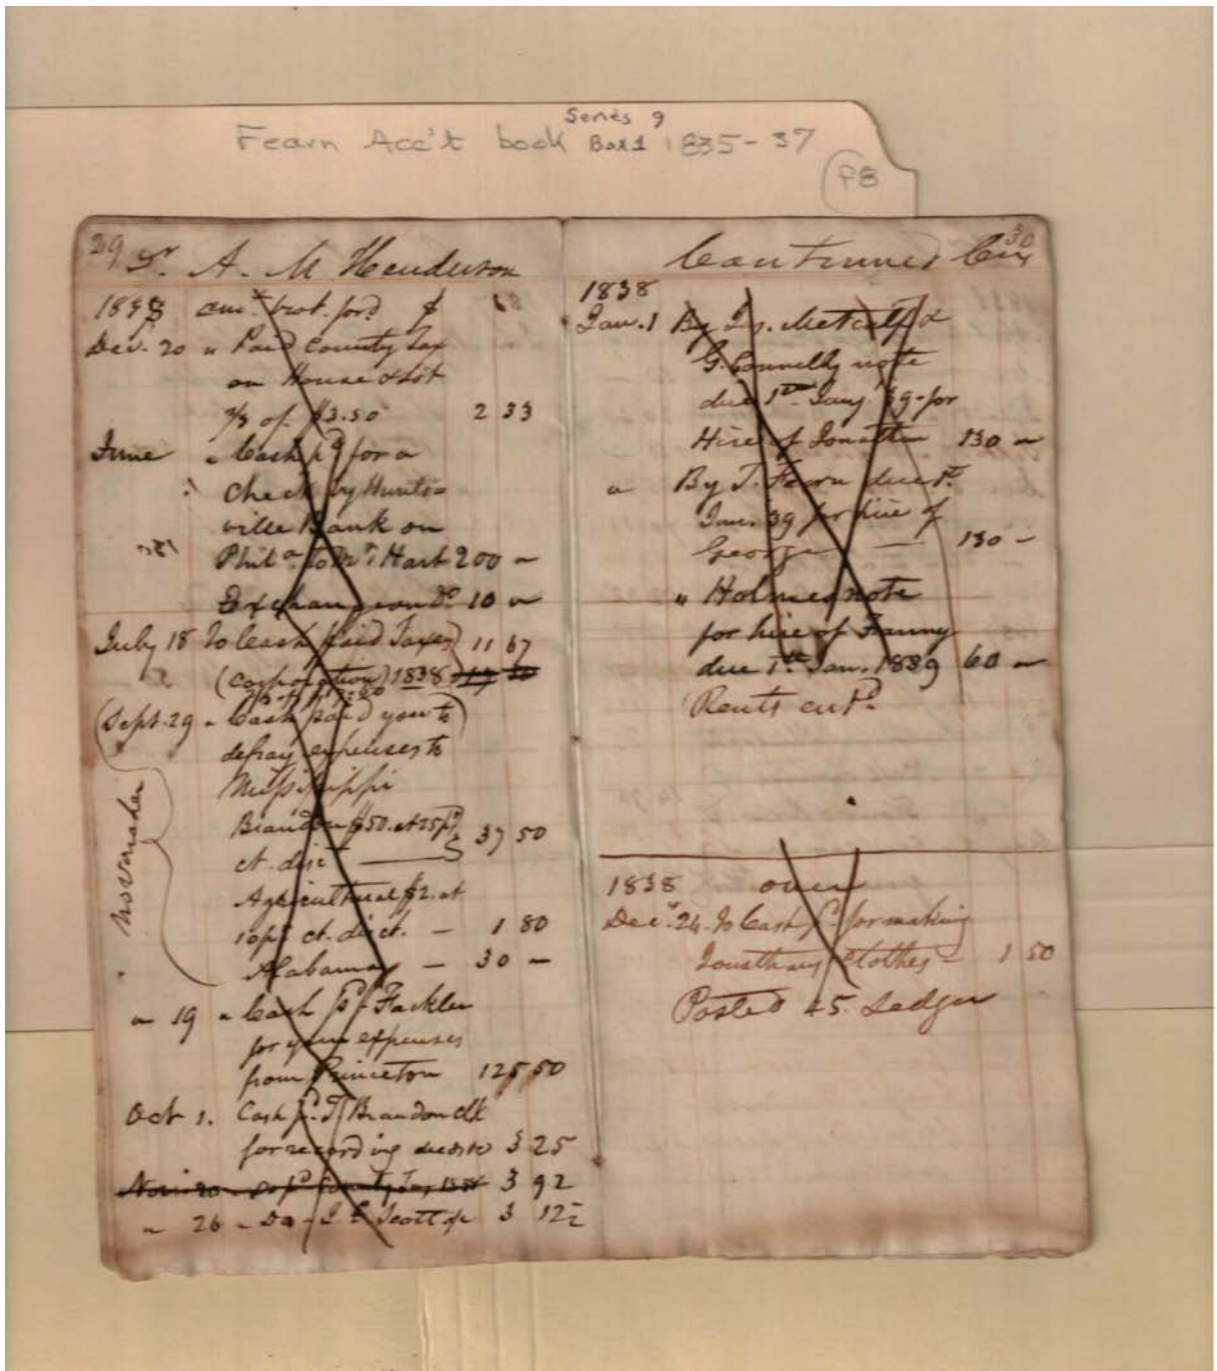 Series 9
Fearn Acc't book Box 1 1835-37
F8
29 Dr. A. M Henderson
1838 amt. brot. ford $
Dec. 20 " Paid County Tax
on House & Lot
2/3 of $3.50 2 33
June " Cash pd for a
Check by Hunts=
ville Bank on
Phila. to Mr. Hart 200 "
Exchange on Do. 10 "
July 18 To Cash paid Taxes 11 67
(corporation) 1838
(Sept. 29 " Cash paid you to
defray expenses to
Mississippi
Brandon $50. at 25 pr
ct. disct 37 50
November
Agricultural $2. at
10 pr ct. disct. - 1 80
Alabama - 30 -
" 19 " Cash pd Fackler
for your expenses
from Princeton 125 50
Oct 1. Cash pd. T. Brandon clk
for recording deeds 3 25
Nov. 20 Do pd County Tax 1838 3 92
" 26 " Do - Scott 3 12½
Continued Cr. 30
1838
Jan. 1 By Metcalf &
G. Connelly note
due 1st Jany 39 for
Hire of Jonathan 130 "
" By T. Fearn due 1st.
Jan. 39 for hire of
George - 130 -
" Holmes note
for hire of Franny
due 1st Jan. 1839 60 "
Rents entd.
1838 over
Decr. 24. To Cash pd. for making
Jonathans Clothes - 1 50
Posted 45. Ledger